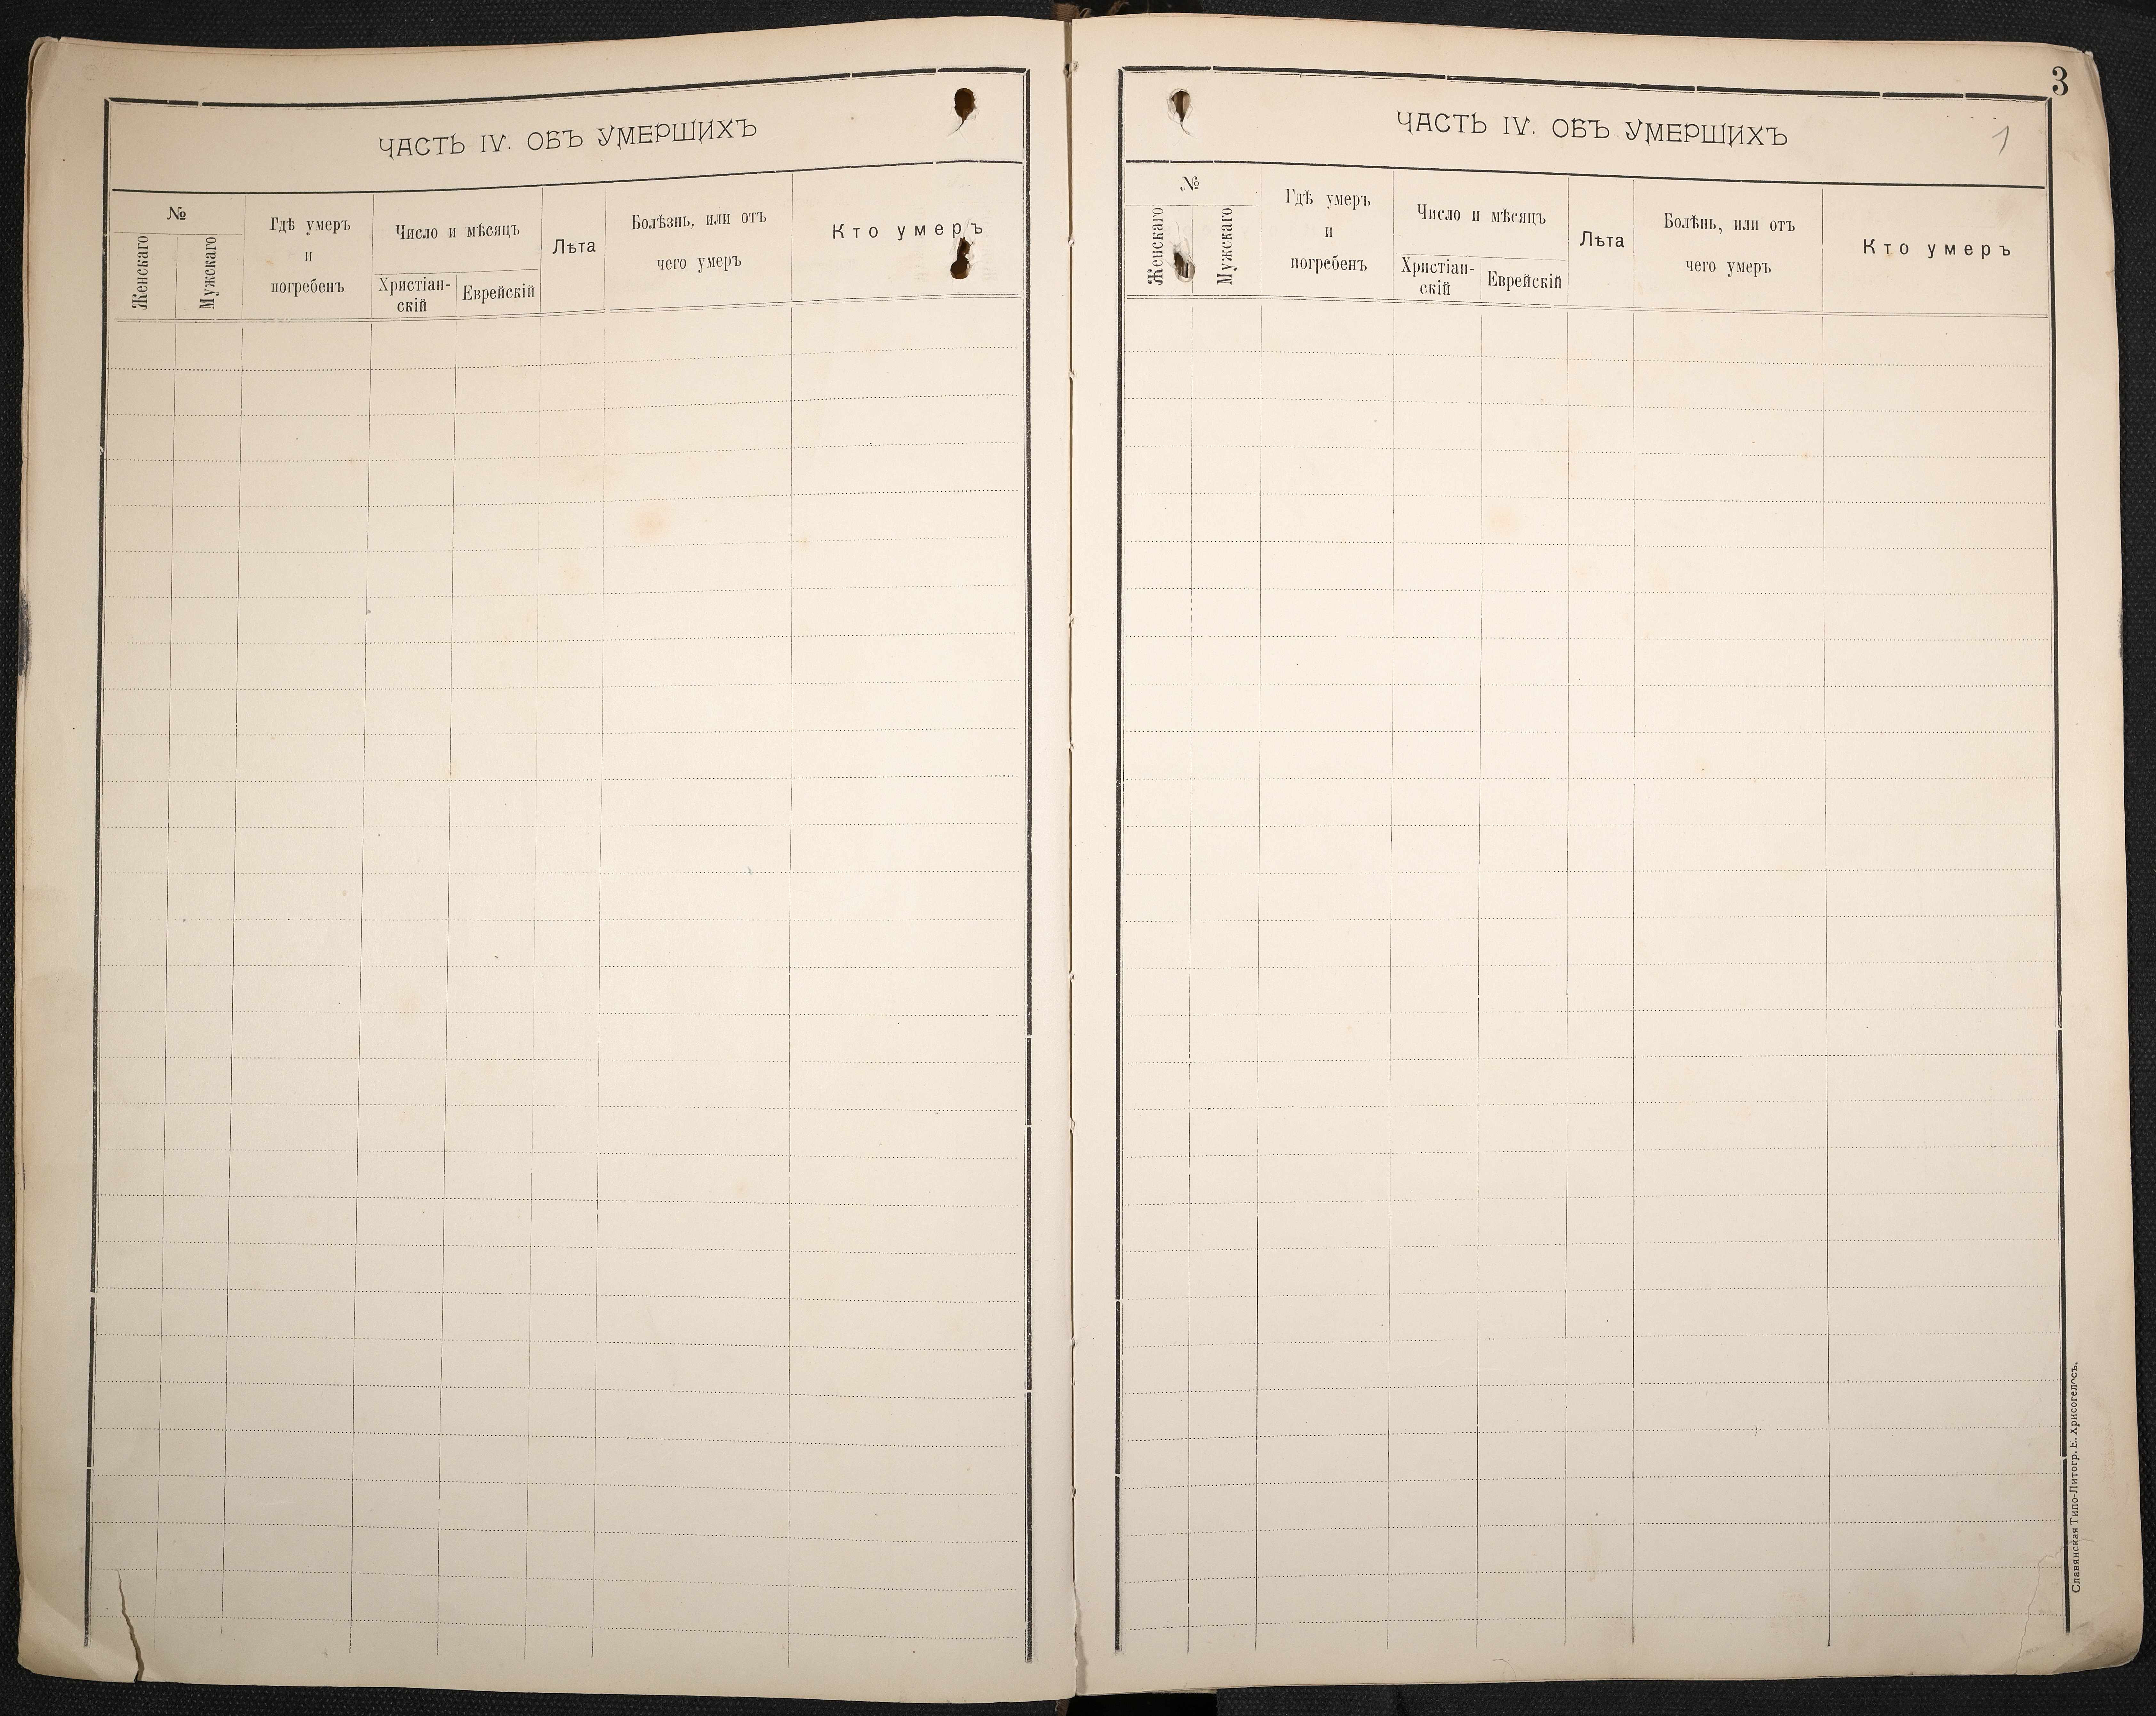 ЧАСТЬ IV. ОБЪ УМЕРШИХЪ
№
Женскаго
Мужскаго
Гдѣ умеръ
и
погребенъ
Число и мѣсяцъ
Христіан-
скій
Еврейскій
Лѣта
Болѣзнь, или отъ
чего умеръ
Кто умеръ
3
ЧАСТЬ IV. ОБЪ УМЕРШИХЪ
1
№
Женскаго
Мужскаго
Гдѣ умеръ
и
погребенъ
Число и мѣсяцъ
Христіан-
скій
Еврейскій
Лѣта
Болѣнь, или отъ
чего умеръ
Кто умеръ
Славянская Типо-Литогр. Е. Хрисогелосъ.